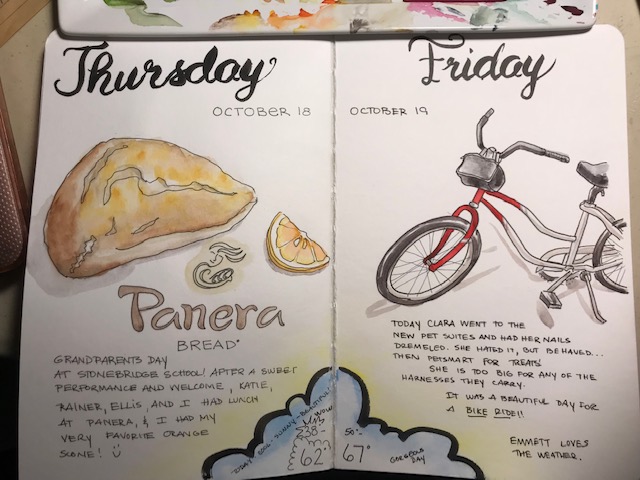 Thursday
OCTOBER 18
Panera
BREAD
GRANDPARENTS DAY
AT STONEBRIDGE SCHOOL! AFTER A SWEET
PERFORMANCE AND WELCOME, KATIE,
RAINER, ELLIS, AND I HAD LUNCH
AT PANERA, & I HAD MY
VERY FAVORITE ORANGE
SCONE!
TODAY COOL-SUNNY-BEAUTIFUL
38-
62°
Friday
OCTOBER 19
TODAY CLARA WENT TO THE
NEW PET SUITES AND HAD HER NAILS
DREMELED. SHE HATED IT, BUT BEHAVED...
THEN PETSMART FOR TREATS!
SHE IS TOO BIG FOR ANY OF THE
HARNESSES THEY CARRY.
IT WAS A BEAUTIFUL DAY FOR
A BIKE RIDE!!
EMMETT LOVES
THE WEATHER.
50°-
67°
GORGEOUS
DAY